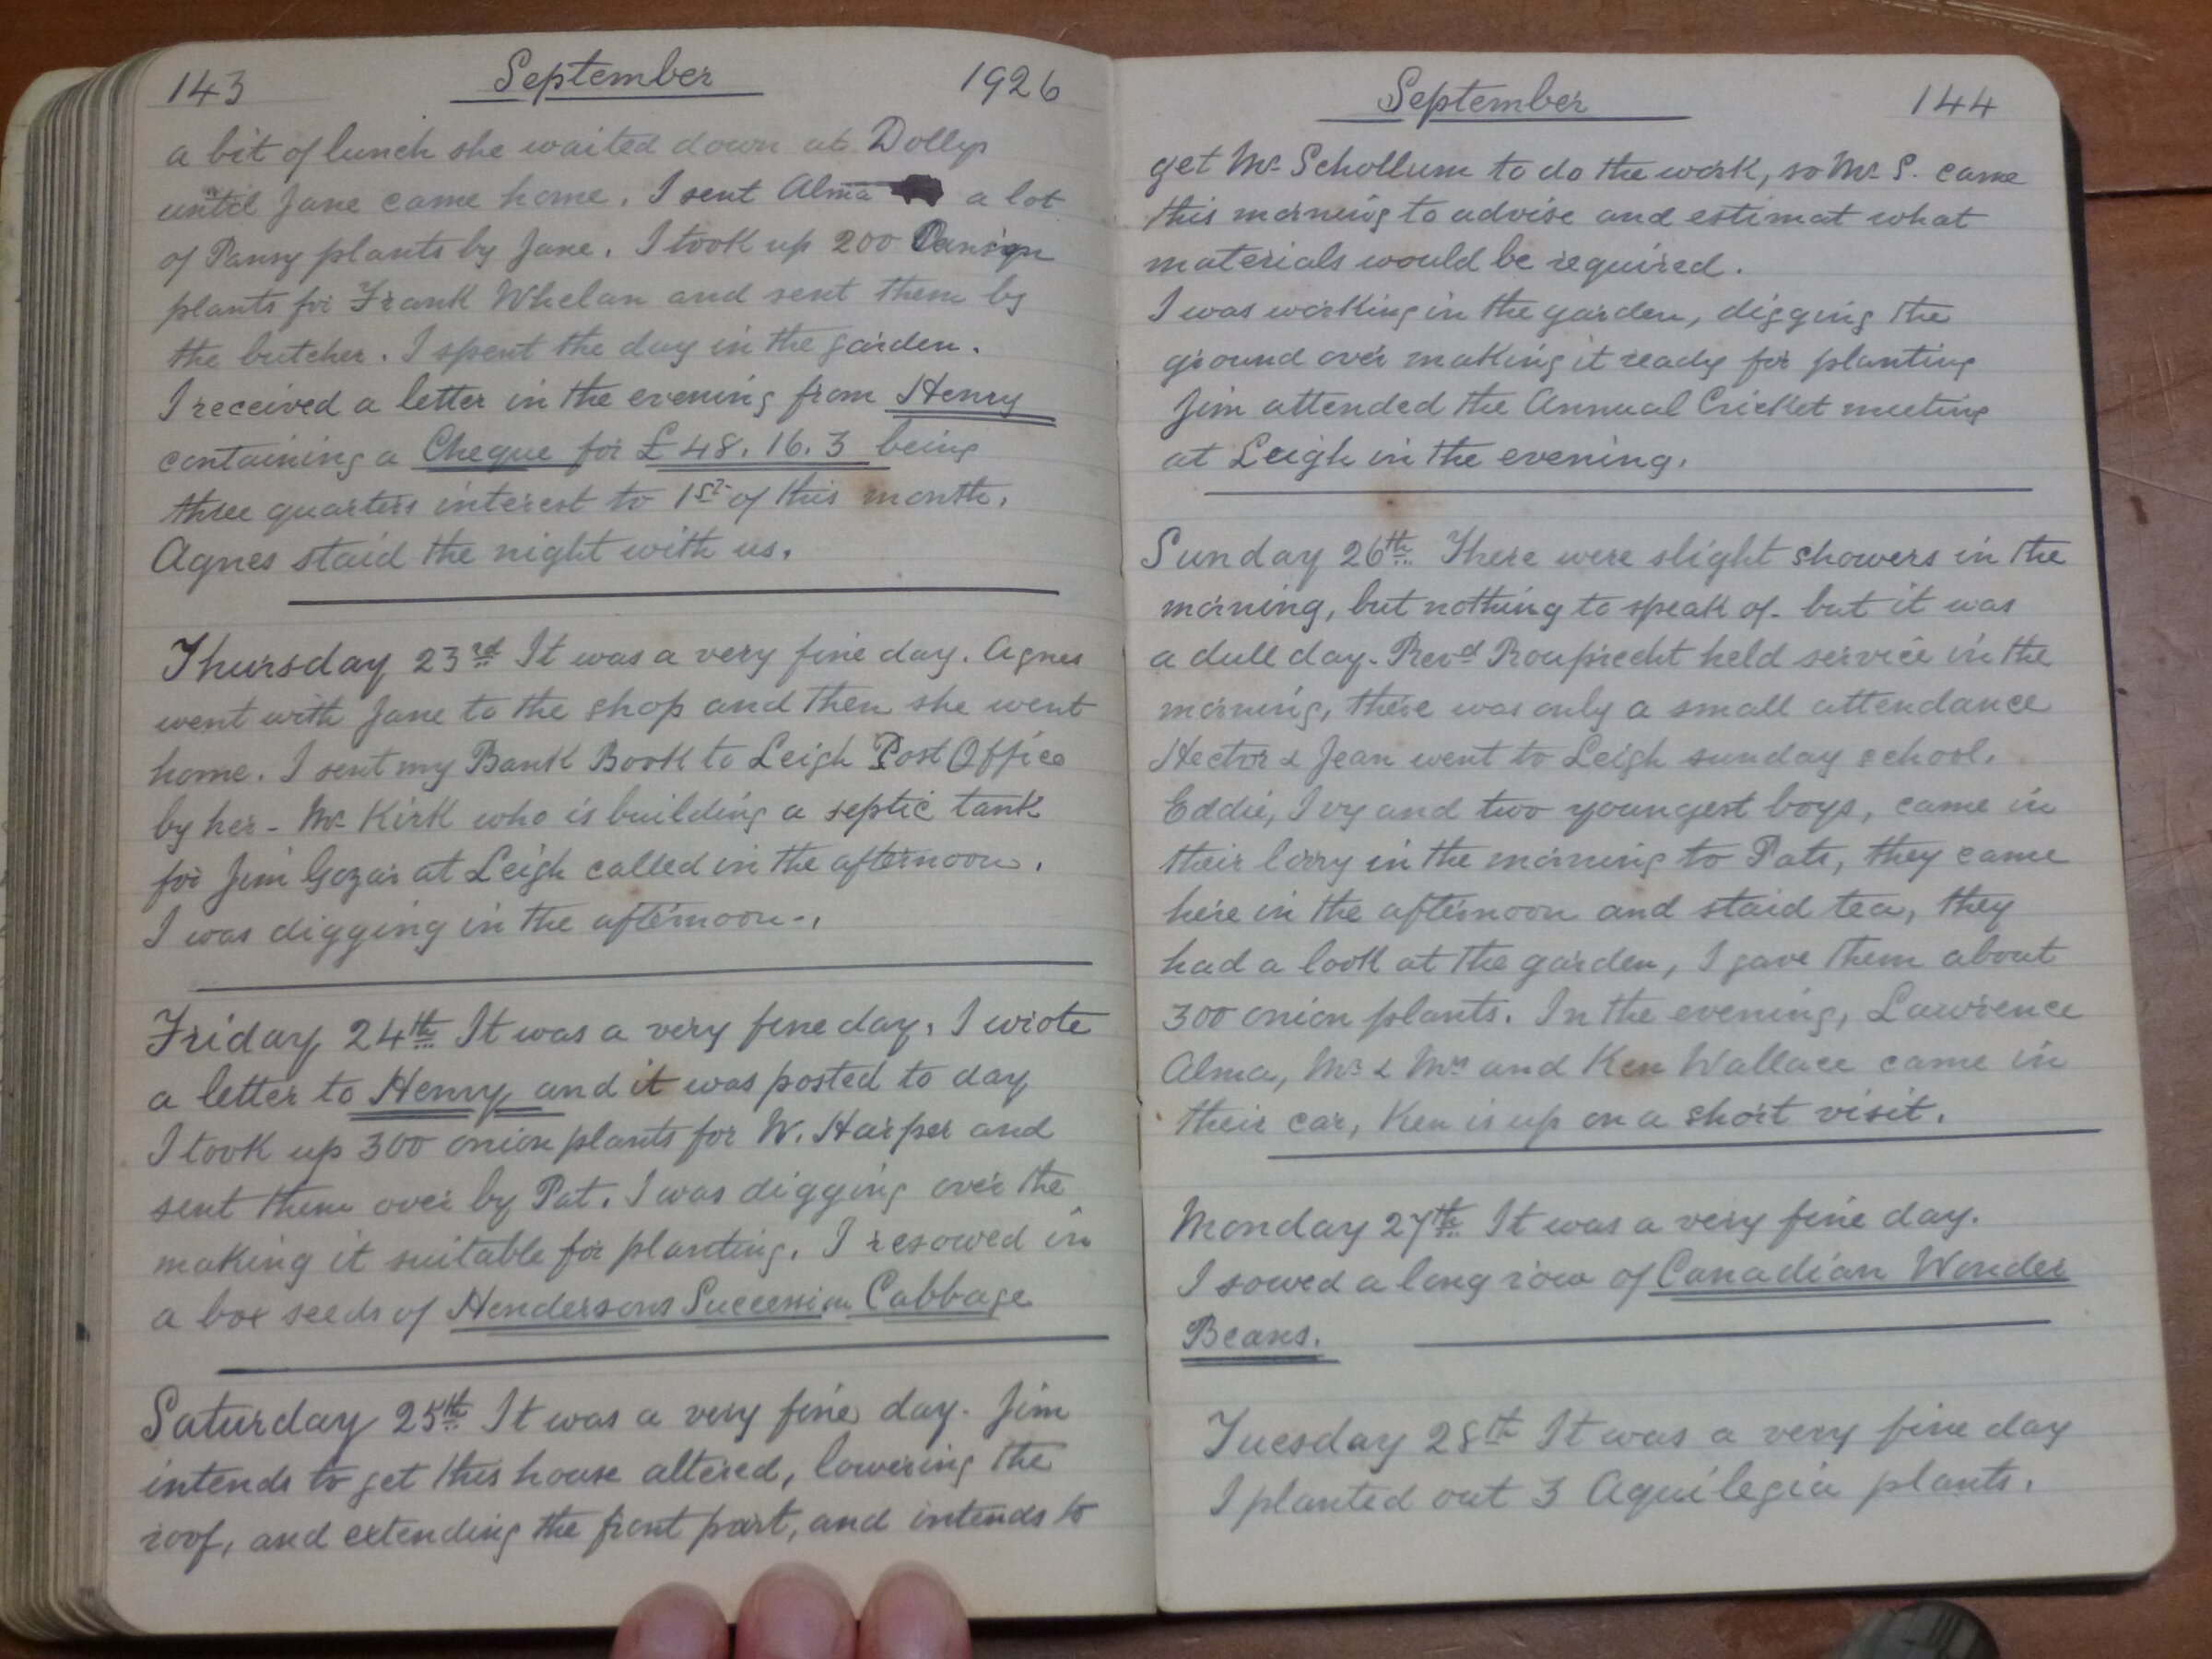 143 September 1926
a bit of lunch she waited down at Dollys
until Jane came home. I sent Alma a lot
of Pansy plants by Jane. I took up 200
plants for Frank Whelan and sent them by
the butcher. I spent the day in the garden.
I received a letter in the evening from Henry
containing a Cheque for £48.16.3 being
three quarters interest to 1st of this month.
Agnes staid the night with us.
Thursday 23rd It was a very fine day. Agnes
went with Jane to the shop and then she went
home. I sent my Bank Book to Leigh Post Office
by her - Mr Kirk who is building a septic tank
for Jim at Leigh called in the afternoon.
I was digging in the afternoon.
Friday 24th It was a very fine day. I wrote
a letter to Henry and it was posted to day
I took up 300 onion plants for W. Harper and
sent them over by Pat. I was digging over the
making it suitable for planting. I resowed in
a box seeds of Hendersons Succession Cabbage
Saturday 25th It was a very fine day. Jim
intends to get this house altered, lowering the
roof, and extending the front part, and intends to
September 144
get Mr Schollum to do the work, so Mr S. came
this morning to advise and estimat what
materials would be required.
I was working in the garden, digging the
ground over making it ready for planting
Jim attended the Annual Cricket meeting
at Leigh in the evening.
Sunday 26th There were slight showers in the
morning, but nothing to speak of - but it was
a dull day. Revd Rouprecht held service in the
morning, there was only a small attendance
Hector & Jean went to Leigh sunday school.
Eddie, Ivy and two youngest boys, came in
their lorry in the morning to Pats, they came
here in the afternoon and staid tea, they
had a look at the garden, I gave them about
300 onion plants. In the evening, Lawrence
Alma, Mr & Mrs and Ken Wallace came in
their car, Ken is up on a short visit.
Monday 27th It was a very fine day.
I sowed a long row of Canadian Wonder
Beans.
Tuesday 28th It was a very fine day
I planted out 3 Aquilegia plants.